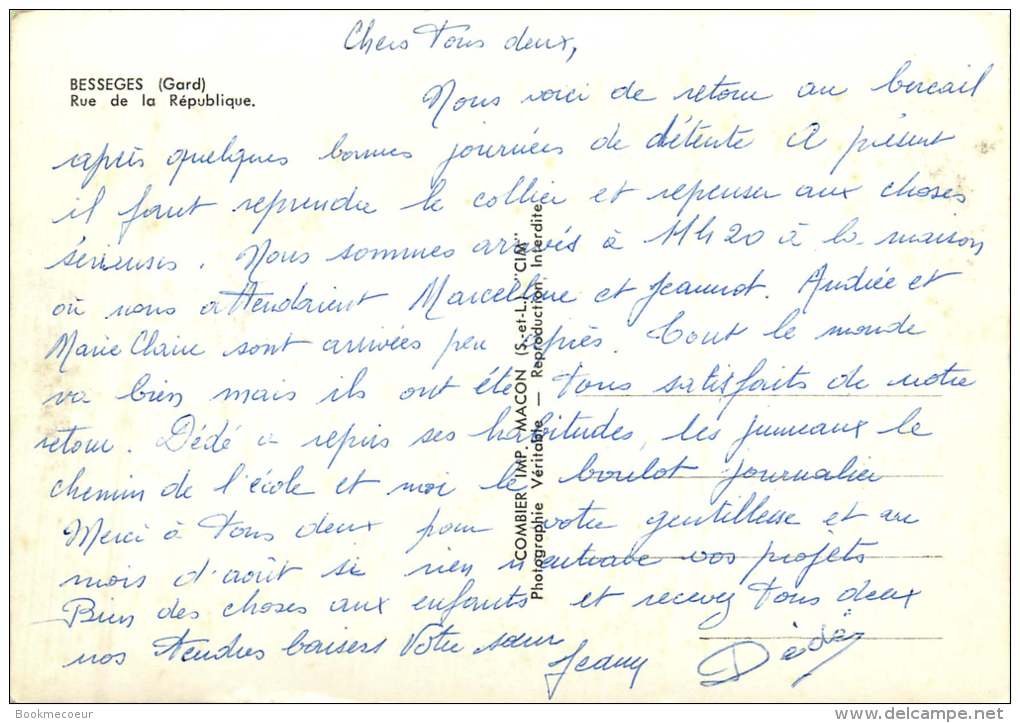 Chers Tous deux,
BESSEGES (Gard)
Rue de la République.
Nous voici de retour au bercail
après quelques bonnes journées de détente A présent
il faut reprendre le collier et repenser aux choses
sérieuses. Nous sommes arrivés à 11h20 à la maison
où nous attendaient Marcelline et Jeannot. Andrée et
Marie Claire sont arrivées peu après. Tout le monde
va bien mais ils ont été tous satisfaits de notre
retour. Dédé a repris ses habitudes, les jumeaux le
chemin de l'école et moi le boulot journalier
Merci à Tous deux pour votre gentillesse et au
mois d'août si rien n'entrave vos projets
Bien des choses aux enfants et recevez Tous deux
nos tendres baisers Votre sœur
Jeany Dédé
COMBIER IMP. MACON (S.-et-L.) "CIM"
Photographie Véritable — Reproduction Interdite
Bookmecoeur
www.delcampe.net